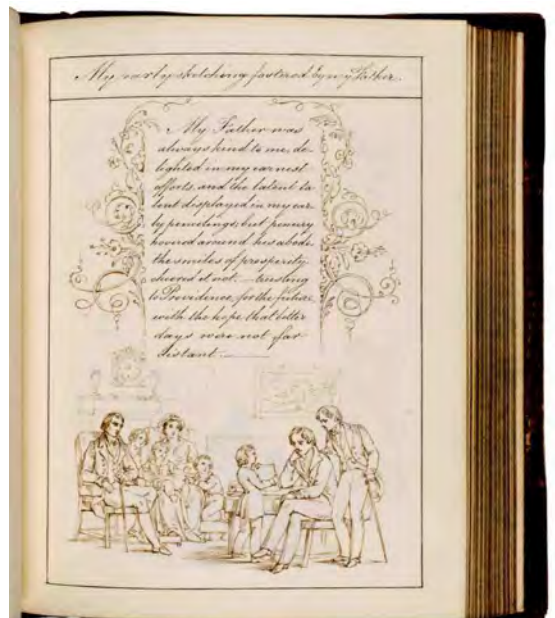 My early sketching fostered by my Father.
My Father was
always kind to me, de-
lighted in my earnest
efforts, and the latent ta-
lent displayed in my ear-
ly pencilings; but penury
hovered around his abode
the smiles of prosperity
cheered it not. — trusting
to Providence, for the future,
with the hope that better
days were not far
distant. —